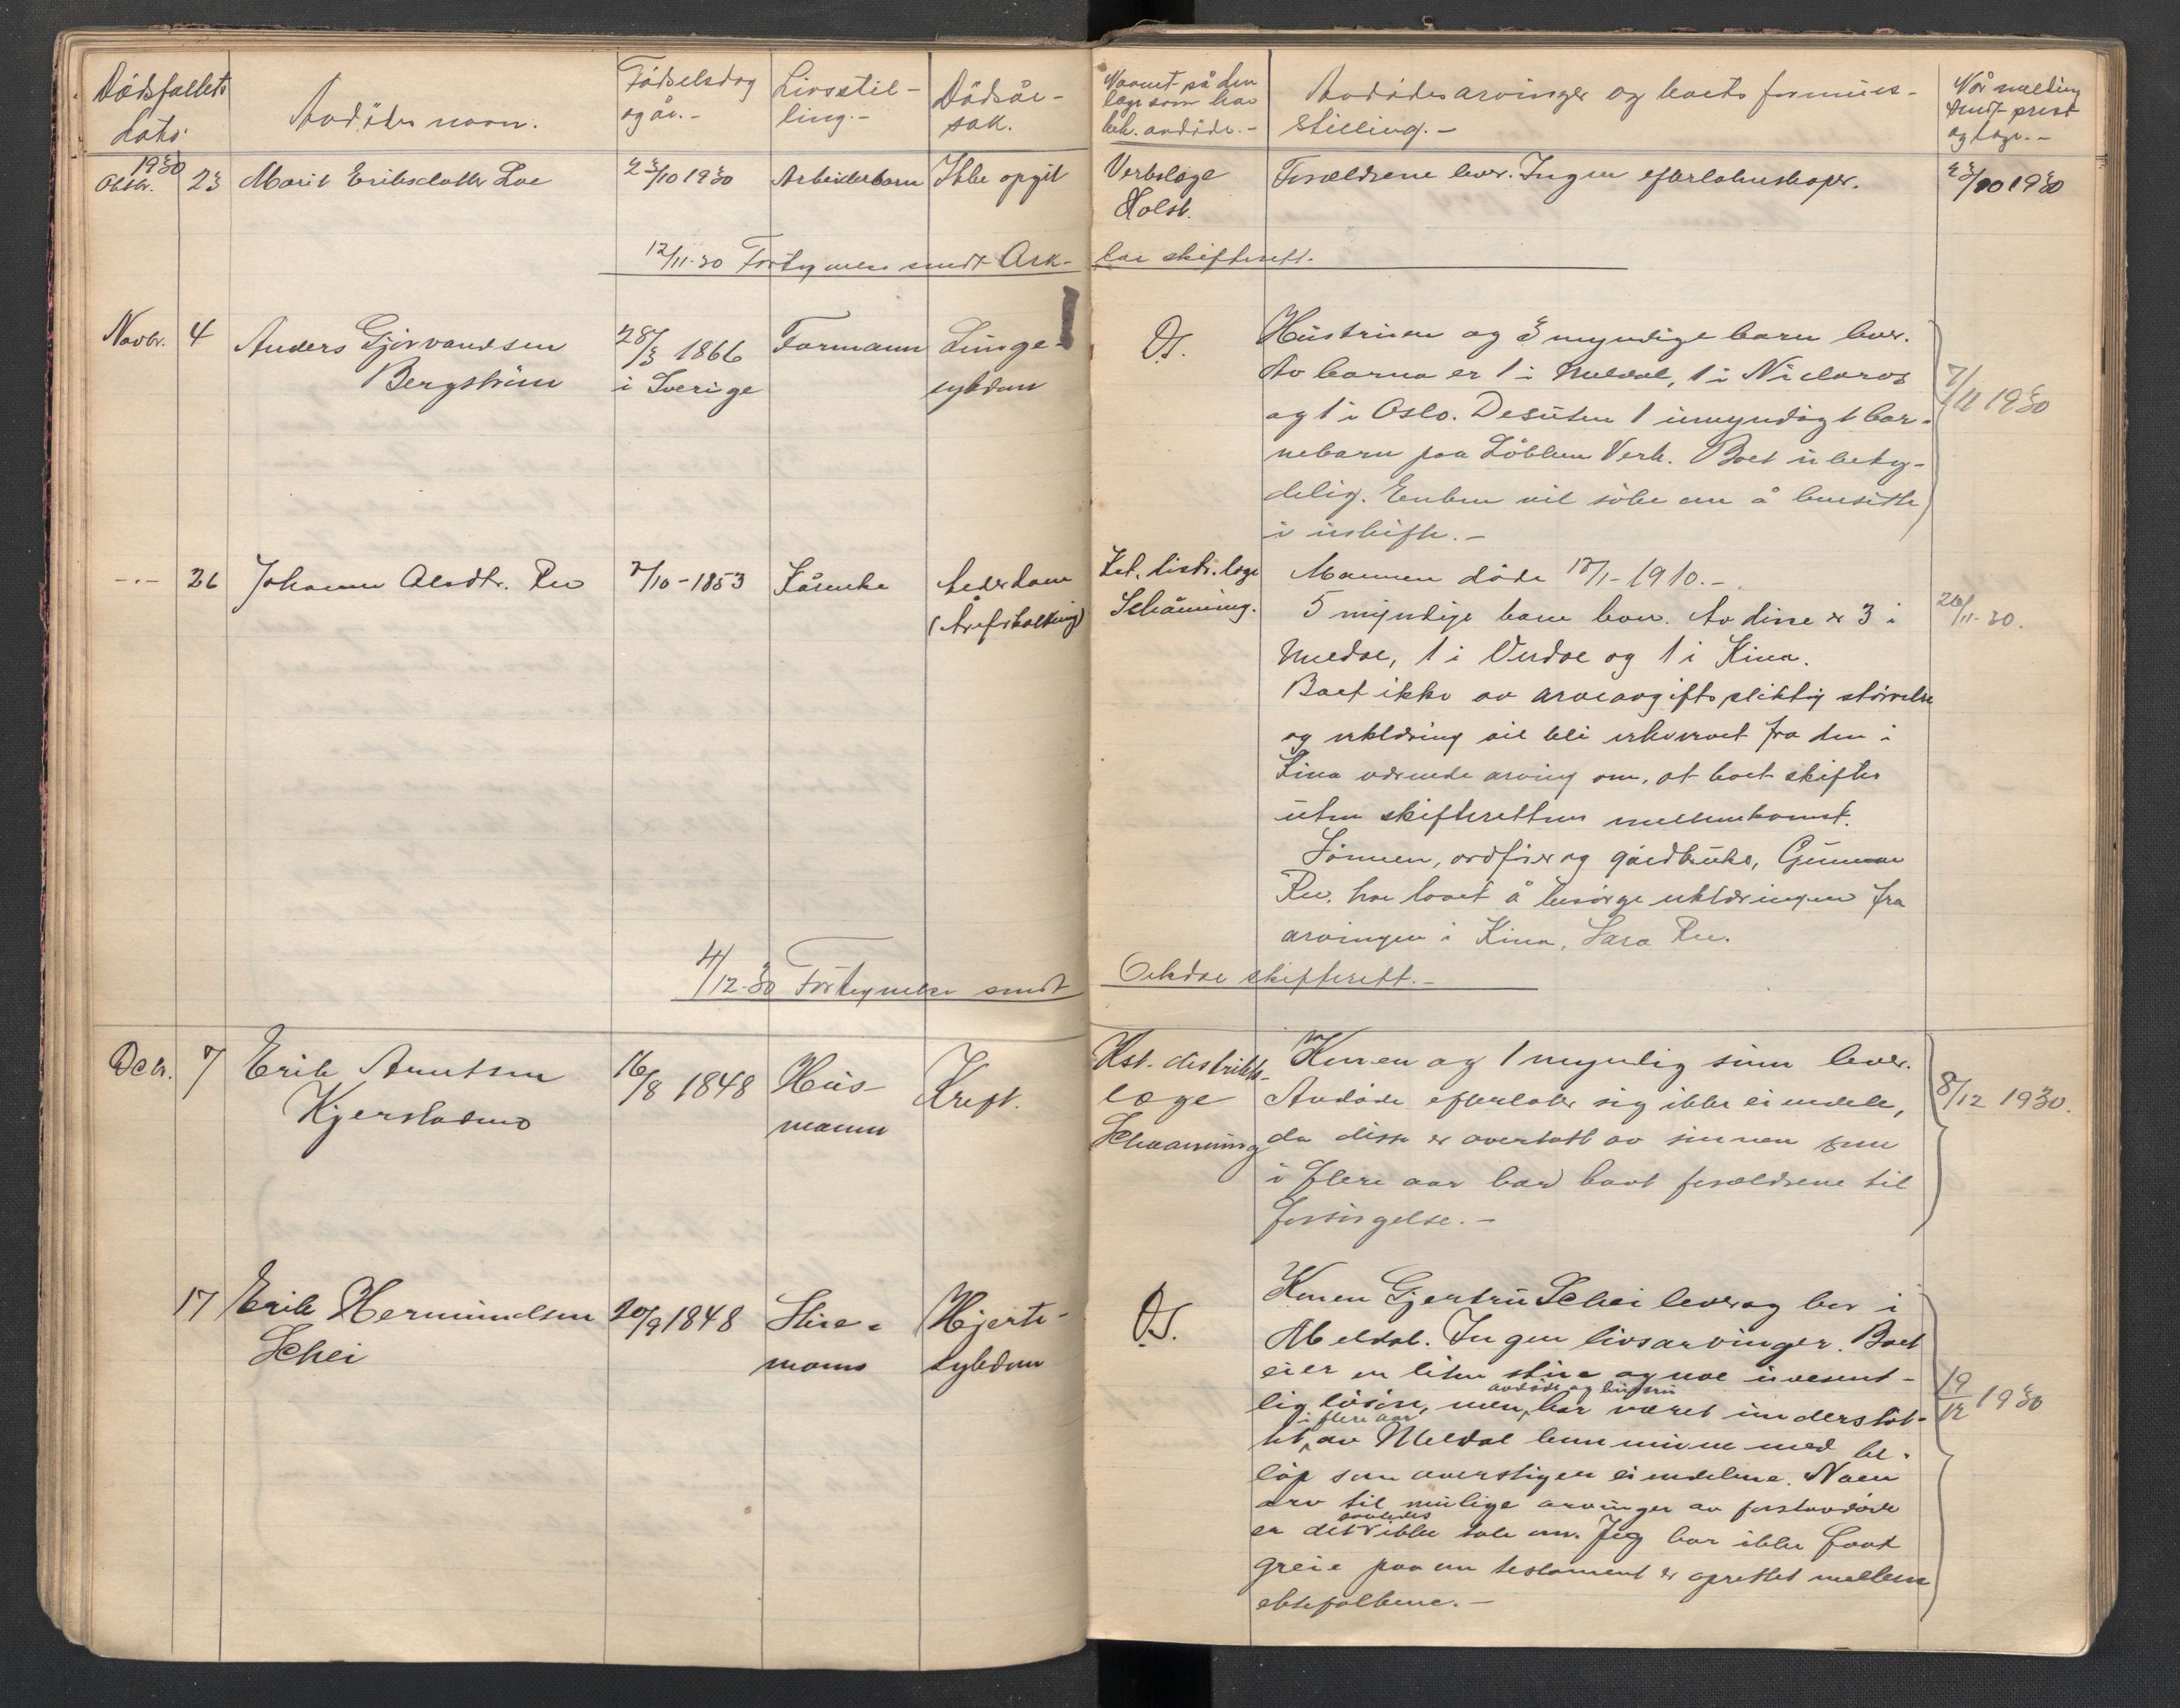 Dødsfallets
dato.
Avdødes navn.
Fødselsdag
og år.-
Livsstil-
ling.-
Dødsår-
sak.
Navnet på den
læge som har
beh. avdøde.-
Avdødes arvinger og boets formues-
stilling.-
Når melding
sendt prest
og læge.-
1930
Oktbr. 23 Marit Eriksdatter Loe 23/10 1930 Arbeiderbarn Ikke opgit
Verkslæge
Holst.
Forældrene lever. Ingen efterlatenskaper.
23/10 1930
12/11-30 Fortegnelse sendt Ork-
dal skifterett.
Novbr. 4 Anders Gjørvandsen
Bergstrøm
28/3 1866
i Sverige
Formann
Lunge-
sykdom
Ds.
Hustruen og 3 myndige barn lever.
Av barna er 1 i Meldal, 1 i Nidaros
og 1 i Oslo. Desuten 1 umyndigt bar-
nebarn paa Løkken Verk. Boet ubety-
delig. Enken vil søke om å hensitte
i uskifte.-
7/11 1930
-"- 26 Johanna Olsdtr. Ree 7/10-1853 Kårenke
Alderdom
(Åreforkalkning)
Kst. distr. læge
Schånning.
Mannen døde 17/1-1910.-
5 myndige barn lever. Av disse er 3 i
Meldal, 1 i Verdal og 1 i Kina.
Boet ikke av arveavgiftspliktig størrelse
og erklæring vil bli erhvervet fra den i
Kina værende arving om, at boet skiftes
uten skifterettens mellemkomst.
Sønnen, ordfører og gårdbruker, Gunnar
Ree, har lovet å besørge erklæringen fra
arvingen i Kina, Sara Ree.
26/11-30.
4/12-30 Fortegnelse sendt
Orkdal skifterett.-
Dcbr. 7 Erik Arntsen
Kjerstadmo
16/8 1848
Hus-
mann
Kreft.
Kst. distrikts-
læge
Schaanning
Konen og 1 myndig sønn lever.
Avdøde efterlater sig ikke eiendele,
da disse er overtatt av sønnen som
i flere aar har havt forældrene til
forsørgelse.-
8/12 1930.
17 Erik Hermundsen
Schei
20/9 1848
Stue-
mann
Hjerte-
sykdom
Ds.
Konen Gjertru Schei lever og bor i
Meldal. Ingen livsarvinger. Boet
eier en liten stue og noe uvesent-
avdøde og hustru
lig løsøre, men har været understøt-
i flere aar
tet av Meldal kommune med be-
løp som overstiger eiendelene. Noen
arv til mulige arvinger av førstavdøde
saaledes
er det ikke tale om. Jeg har ikke faat
greie paa om testament er oprettet mellem
ektefolkene.-
19/12 1930